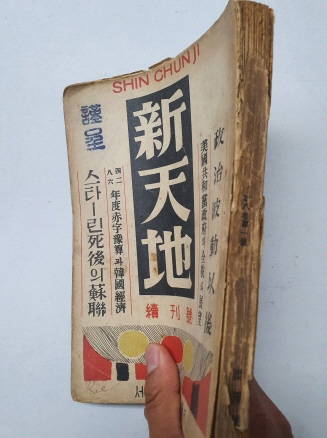 SHIN CHUNJI
新天地
續刊號
政治波動以後
美國共和黨政府의 全貌와 展望
四二八六年度赤字豫算과 韓國經濟
스타—린死後의蘇聯
謹呈
서